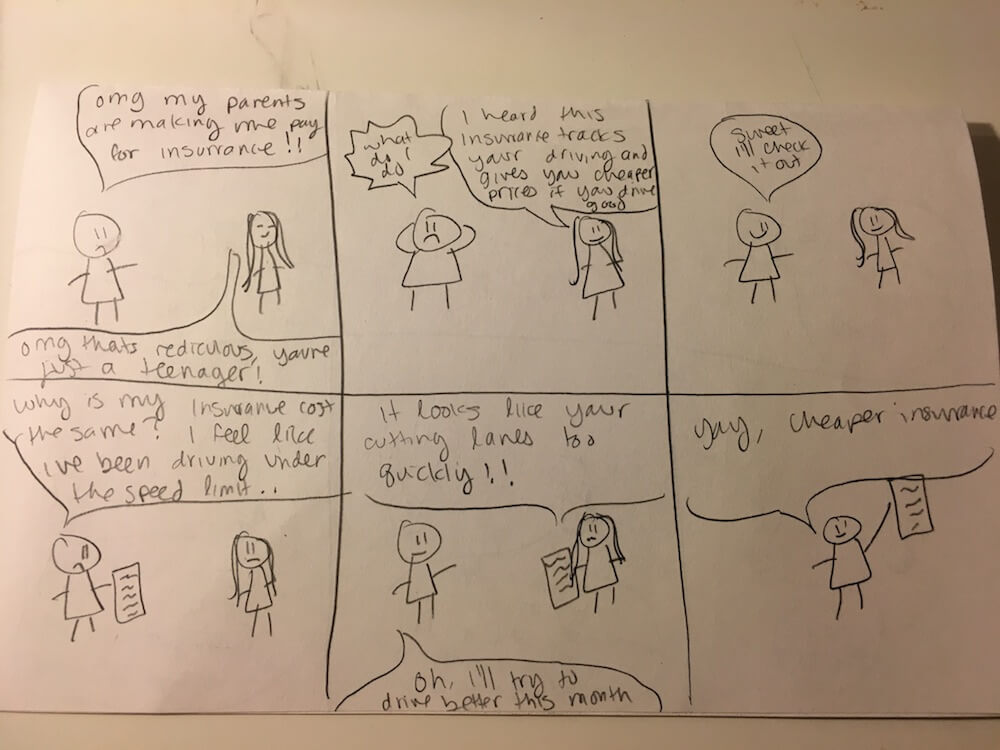 omg my parents
are making me pay
for insurrance!!
omg thats rediculous, you're
just a teenager!
what
do i
do
I heard this
insurrance tracks
your driving and
gives you cheaper
prices if you drive
good
sweet
i'll check
it out
why is my insurrance cost
the same? I feel like
ive been driving under
the speed limit..
it looks like your
cutting lanes too
quickly!!
oh, i'll try to
drive better this month
yay, cheaper insurrance